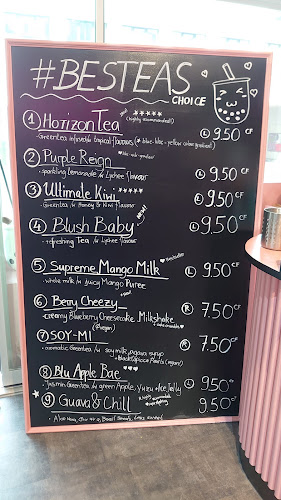 #BESTEAS
CHOICE
① Horizon Tea
(highly recommended!)
Ⓛ 9.50 CF
② Purple Reign
- sparkling Lemonade w Lychee flavour
Ⓛ 9.50 CF
③ Ultimate Kiwi
- Greentea w Honey & Kiwi flavour
Ⓛ 9.50 CF
④ Blush Baby
- refreshing Tea w Lychee flavour
Ⓛ 9.50 CF
⑤ Supreme Mango Milk
Bestseller
- whole milk w juicy Mango Puree
Ⓛ 9.50 CF
⑥ Berry Cheezy
- creamy Blueberry Cheesecake Milkshake
Ⓡ 7.50 CF
⑦ SOY-MI (Vegan)
- aromatic Greentea w soy milk, agava syrup
+ Black Tapioca Pearls (vegan)
Ⓡ 7.50 CF
⑧ Blu Apple Bae
- Jasmin Greentea w green Apple, Yuzu + Ice Jelly
Ⓛ 9.50
⑨ Guava & Chill
Ⓛ 9.50 CF